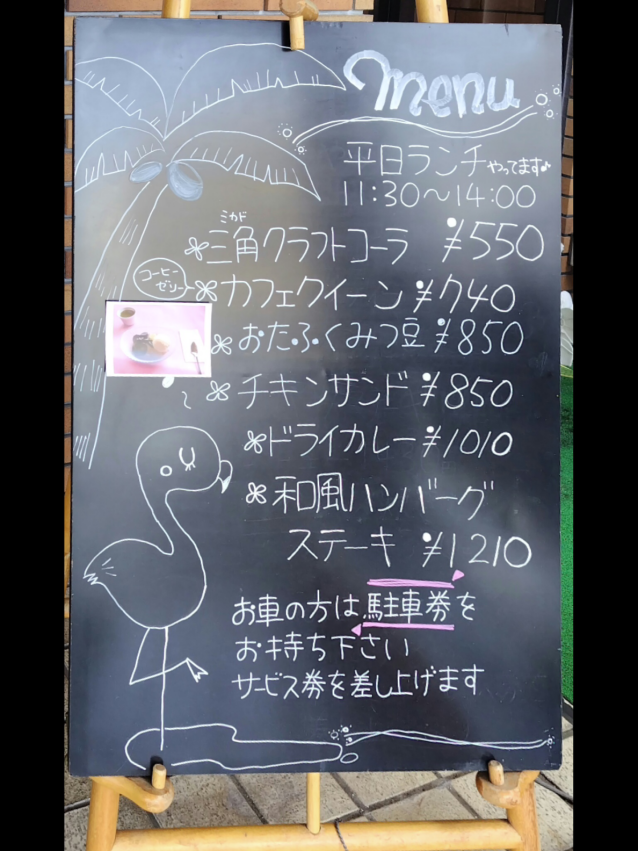 menu
平日ランチやってます♪
11:30～14:00
ミカド
三角クラフトコーラ ¥550
コーヒーゼリー
カフェクイーン ¥740
おたふくみつ豆 ¥850
チキンサンド ¥850
ドライカレー ¥1010
和風ハンバーグ
ステーキ ¥1210
お車の方は駐車券を
お持ち下さい
サービス券を差し上げます